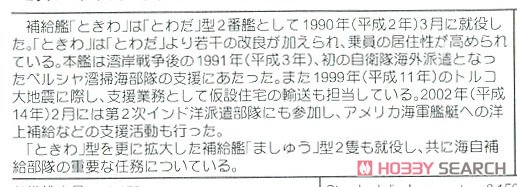 補給艦「ときわ」は「とわだ」型2番艦として1990年(平成2年)3月に就役し
た。「ときわ」は「とわだ」より若干の改良が加えられ、乗員の居住性が高められ
ている。本艦は湾岸戦争後の1991年(平成3年)、初の自衛隊海外派遣となっ
たペルシャ湾掃海部隊の支援にあたった。また1999年(平成11年)のトルコ
大地震に際し、支援業務として仮設住宅の輸送も担当している。2002年(平成
14年)2月には第2次インド洋派遣部隊にも参加し、アメリカ海軍艦艇への洋
上補給などの支援活動も行った。
「ときわ」型を更に拡大した補給艦「ましゅう」型2隻も就役し、共に海自補
給部隊の重要な任務についている。
HOBBY SEARCH